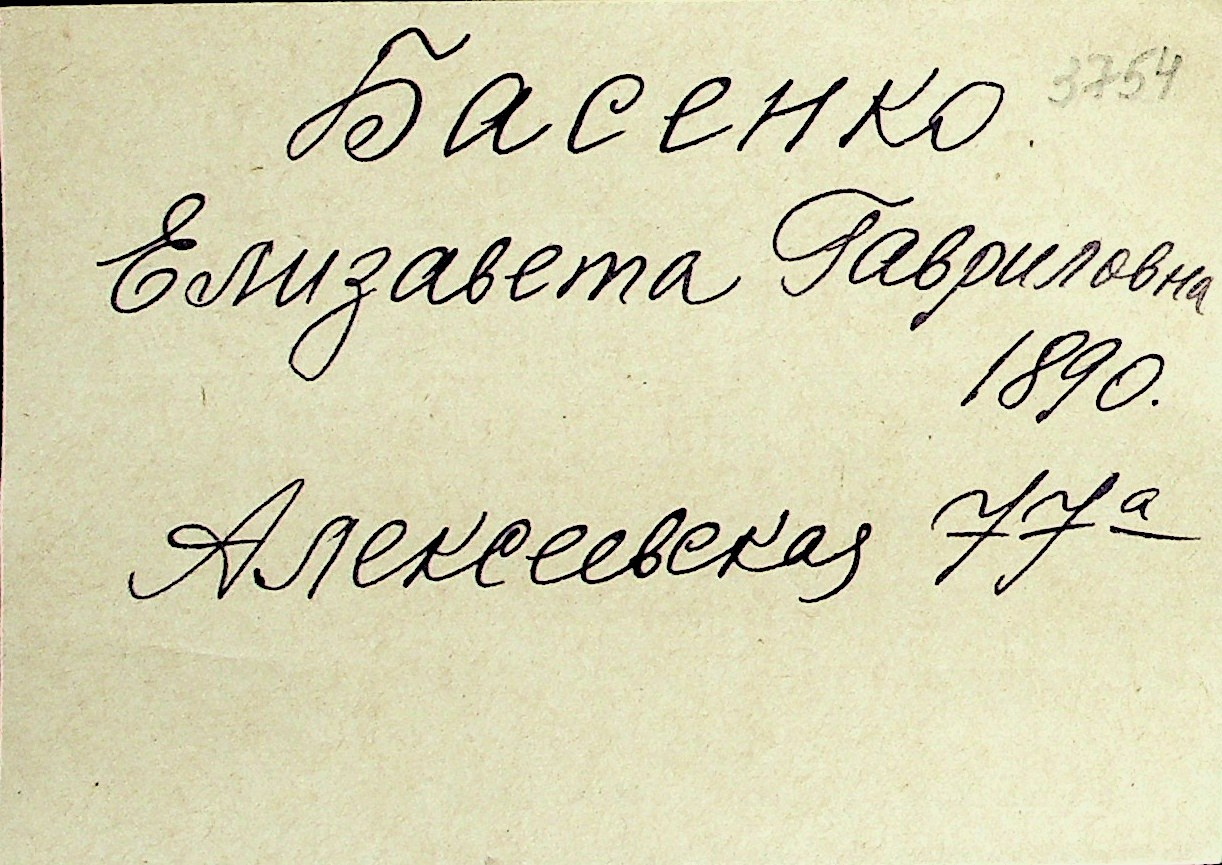 Басенко. 3754
Елизавета Гавриловна
1890.
Алексеевская 77а